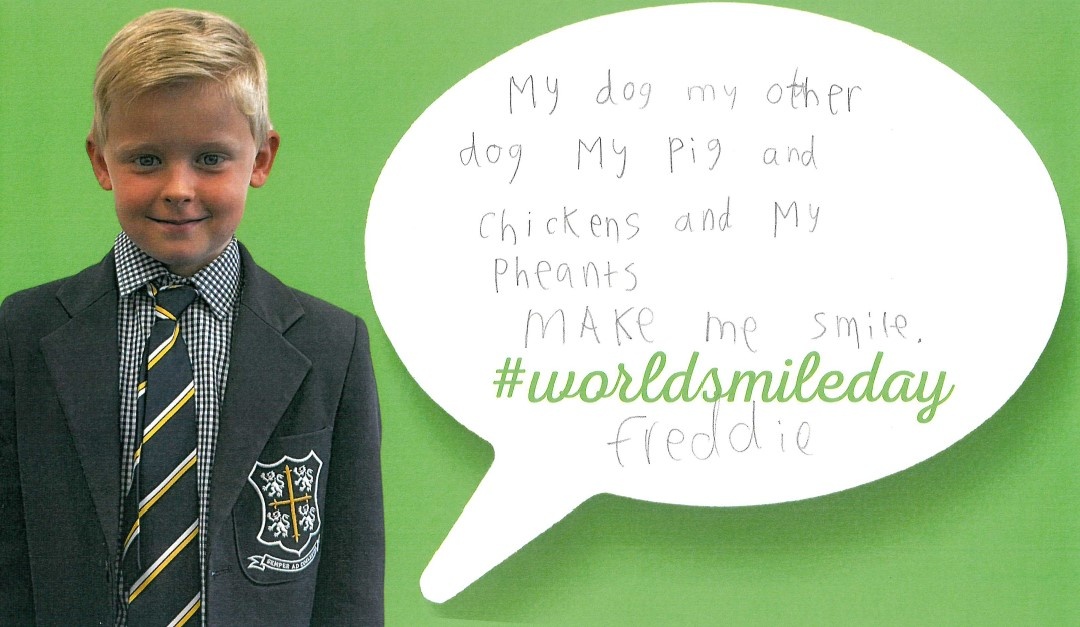 My dog my other
dog My pig and
chickens and My
Pheants
MAKe me smile.
#worldsmileday
freddie
SEMPER AD